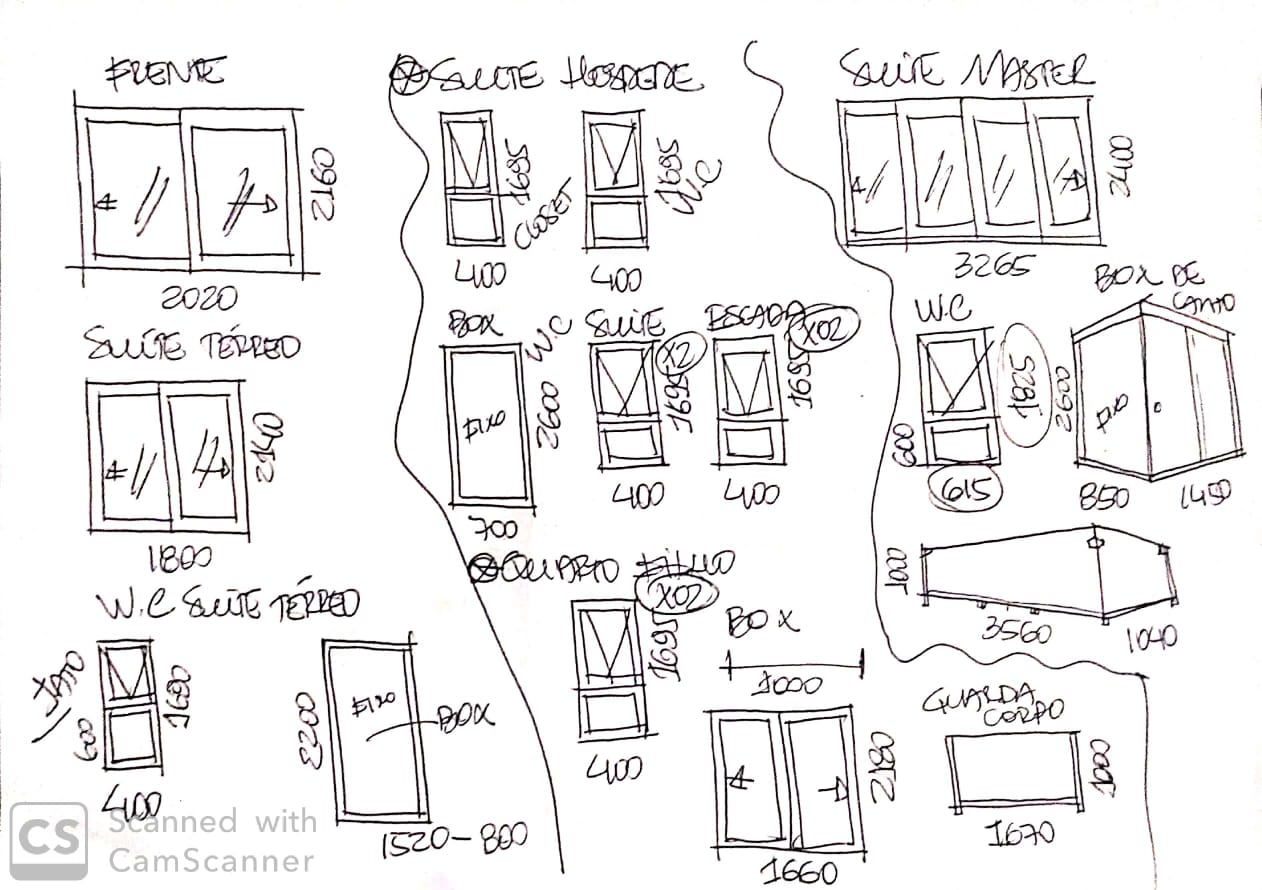 FRENTE
2160
2020
SUÍTE TÉRREO
2140
1800
W.C SUÍTE TÉRREO
JATO
600
1690
400
2200
FIXO
BOX
1520-800
SUITE HOSPEDE
1695
CLOSET
400
1695
W.C
400
BOX
W.C
FIXO
2600
700
SUITE
X2
1695
400
ESCADA
X02
1695
400
QUARTO FILHO
X02
1695
400
BOX
1000
2180
1660
SUITE MASTER
2400
3265
W.C
600
615
BOX DE
CANTO
2600
FIXO
850
1450
1000
3560
1040
GUARDA
CORPO
1000
1670
CS
Scanned with
CamScanner